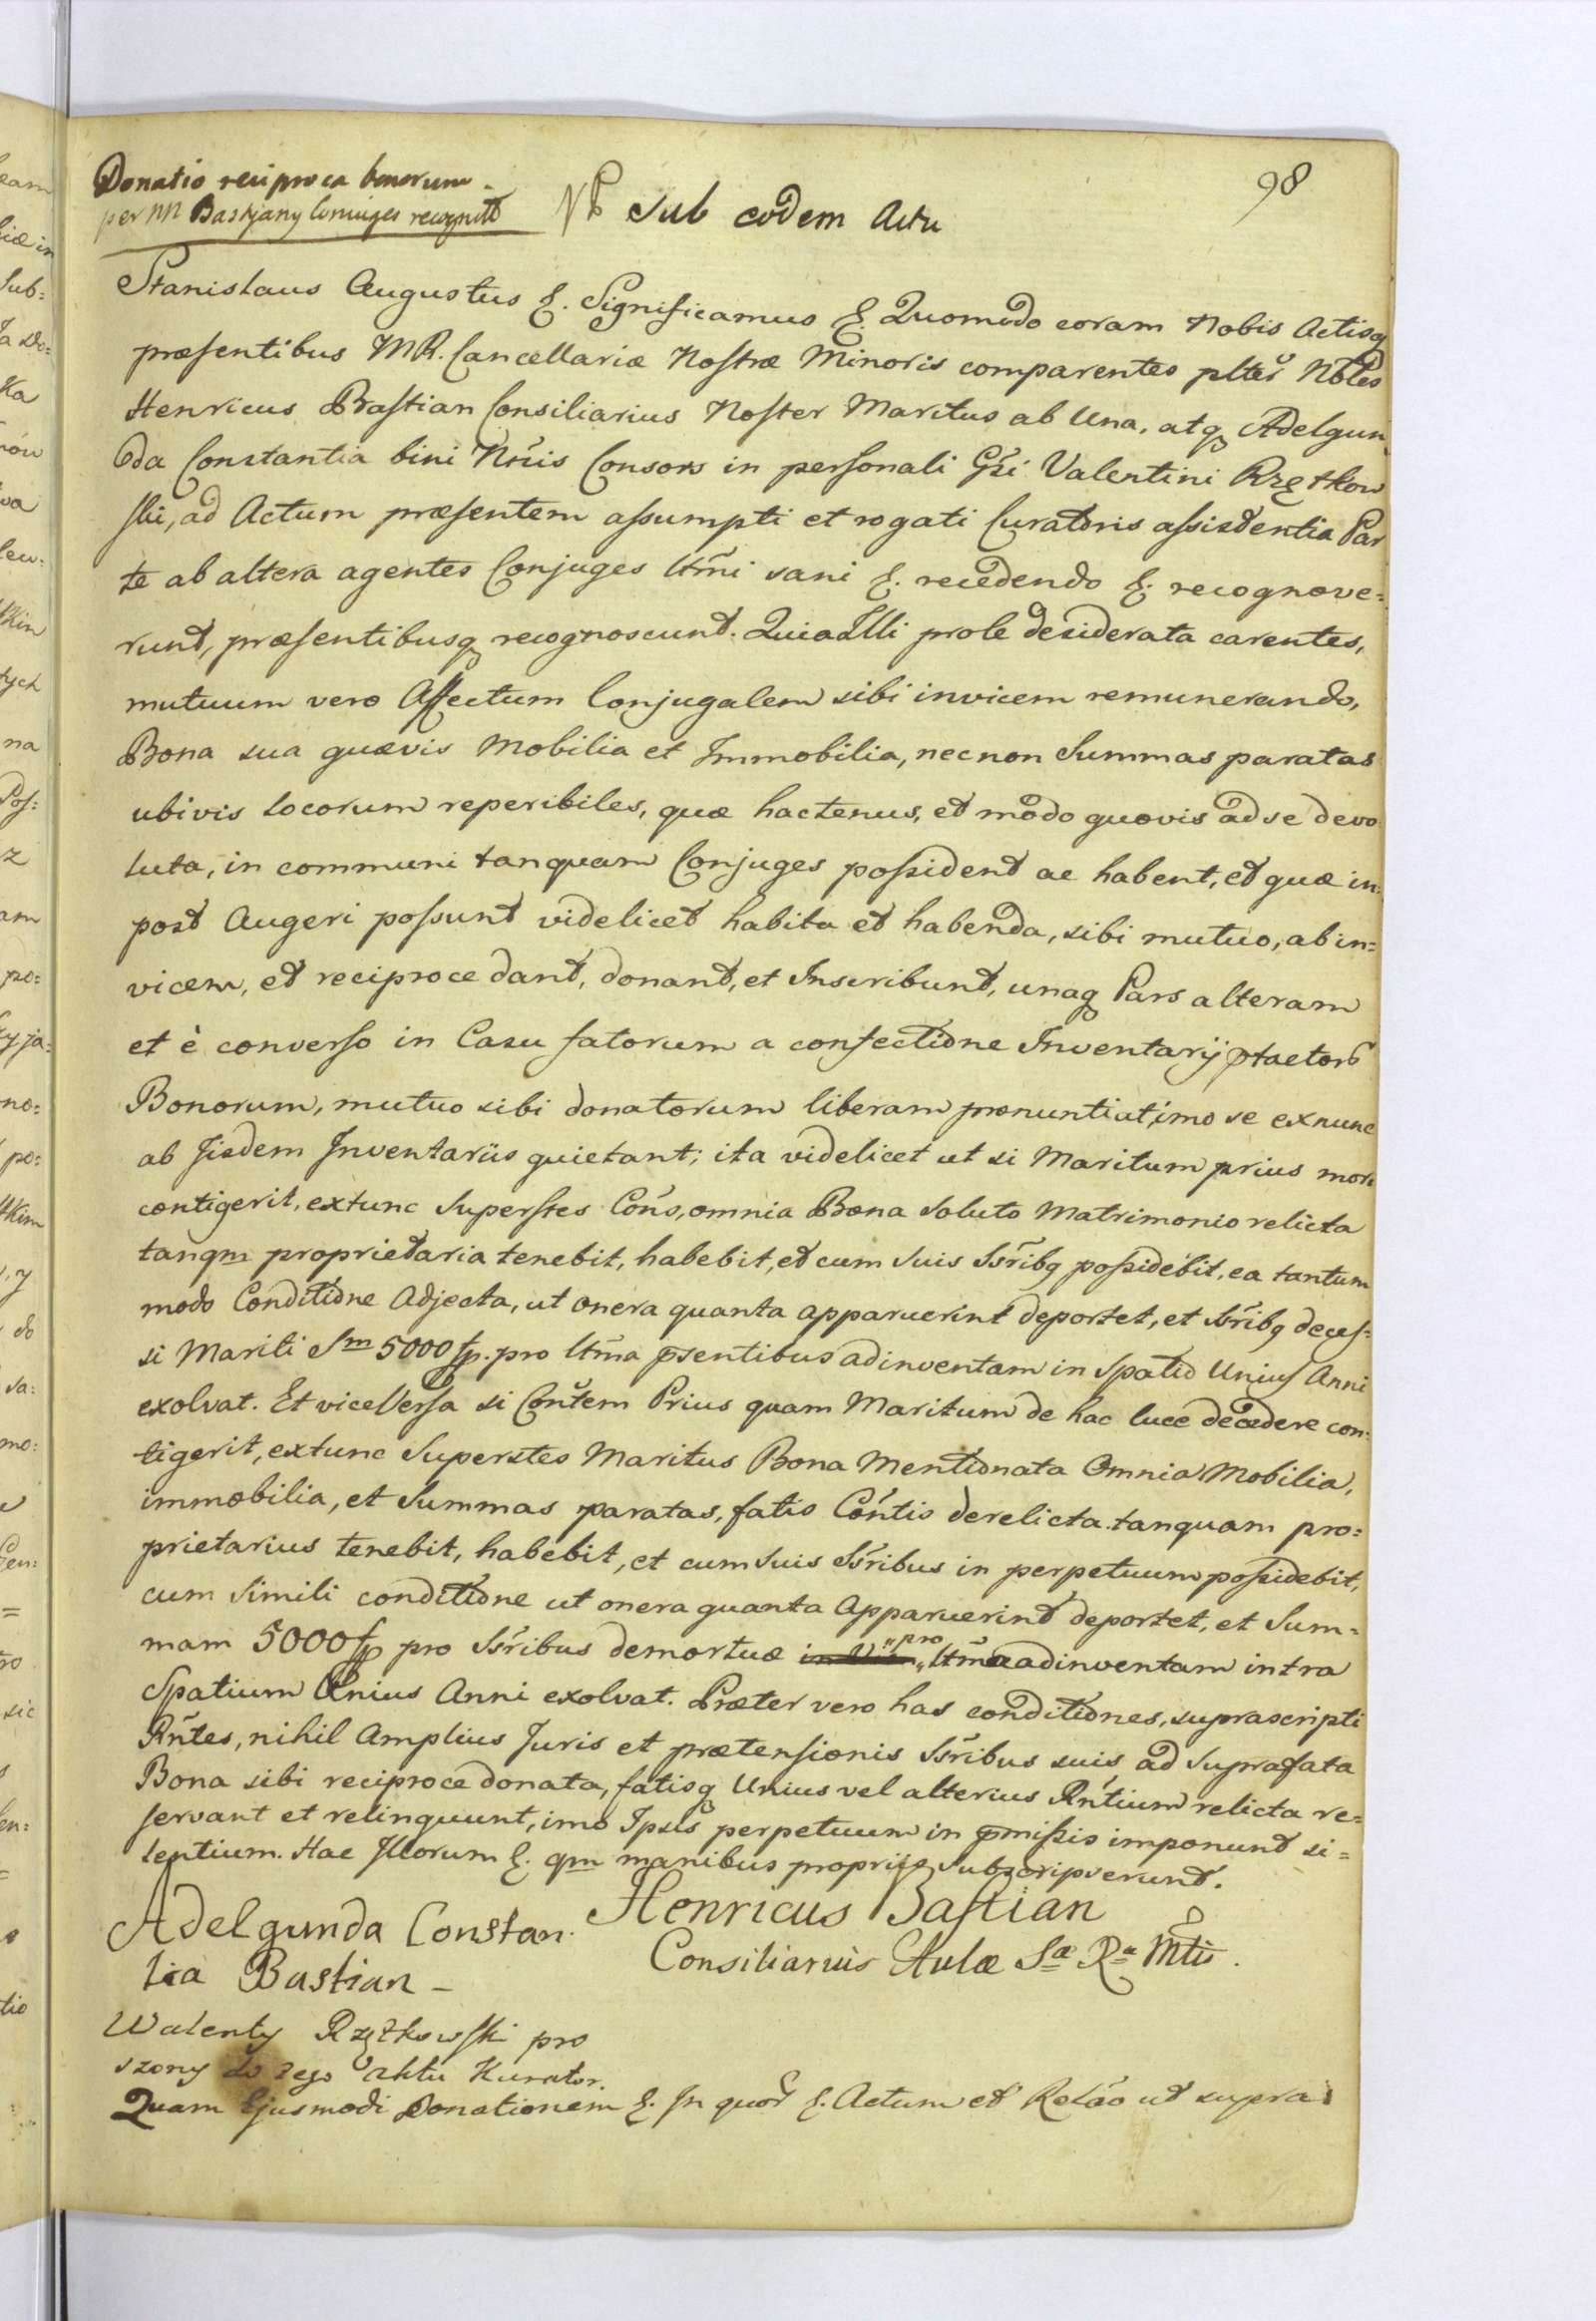 98
Donatio reciproca bonorum
per NN Bastjany Coniuges recognitt
Nb Sub eodem Actu
Stanislaus Augustus &. Significamus &. Quomodo coram Nobis Actisq
præsentibus M R. Cancellariæ Nostræ Minoris comparentes plter Nbles
Henricus Bastian Consiliarius Noster Maritus ab Una, atq Adelgun
da Constantia bini Nnis Consors in personali Gsi Valentini Rzętkow
ski, ad Actum præsentem assumpti et rogati Curatoris assistentia Par
te ab altera agentes Conjuges ltmi sani &. recedendo &. recognove=
runt, præsentibusq recognoscunt. Quia Illi prole desiderata carentes,
mutuum vero Affectum Conjugalem sibi invicem remunerando,
Bona sua quævis Mobilia et Immobilia, nec non Summas paratas
ubivis locorum reperibiles, quæ hactenus, et modo quovis ad se devo
luta, in communi tanquam Conjuges possident ac habent, et quæ in
post Augeri possunt videlicet habita et habenda, sibi mutuo, ab in=
vicem, et reciproce dant, donant, et Inscribunt, unaq Pars alteram
et è converso in Casu fatorum a confectione Inventarij ptactorum
Bonorum, mutuo sibi donatorum liberam pronuntiat, imo se exnunc
ab Iisdem Inventariis quietant; ita videlicet ut si Maritum prius mori
contigerit, extunc Superstes Cons, omnia Bona Soluto Matrimonio relicta
tanqm proprietaria tenebit, habebit, et cum Suis Ssribq possidebit, ea tantum
modo Conditione Adjecta, ut onera quanta apparuerint deportet, et Ssribq decess=
si Mariti Sm 5000 fp. pro ltma psentibus adinventam in Spatio Unius Anni
exolvat. Et vice Versa si Contem Prius quam Maritum de hac luce decedere con=
tigerit, extunc Superstes Maritus Bona Mentionata Omnia Mobilia,
immobilia, et Summas paratas, fatis Contis derelicta tanquam pro=
prietarius tenebit, habebit, et cum Suis Ssribus in perpetuum possidebit,
cum Simili conditione ut onera quanta Apparuerint deportet, et Sum=
mam 5000 fp pro Ssribus demortuæ pro ltma adinventam intra
Spatium Unius Anni exolvat. Præter vero has conditiones, suprascripti
Rntes, nihil Amplius Juris et prætensionis Ssribus suis, ad Suprafata
Bona sibi reciproce donata, fatisq Unius vel alterius Rntium relicta re=
servant et relinquunt, imo Ipsis perpetuum in pmissis imponunt si=
lentium. Hac Illorum &. qm manibus propriis Subscripserunt.
Adelgunda Constan
tia Bastian –
Henricus Bastian
Consiliarius Aulæ Sæ Ræ Mtis.
Walenty Rzętkowski pro
szony do tego Aktu Kurator.
Quam Ejusmodi Donationem &. In quor &. Actum et Relao ut supra